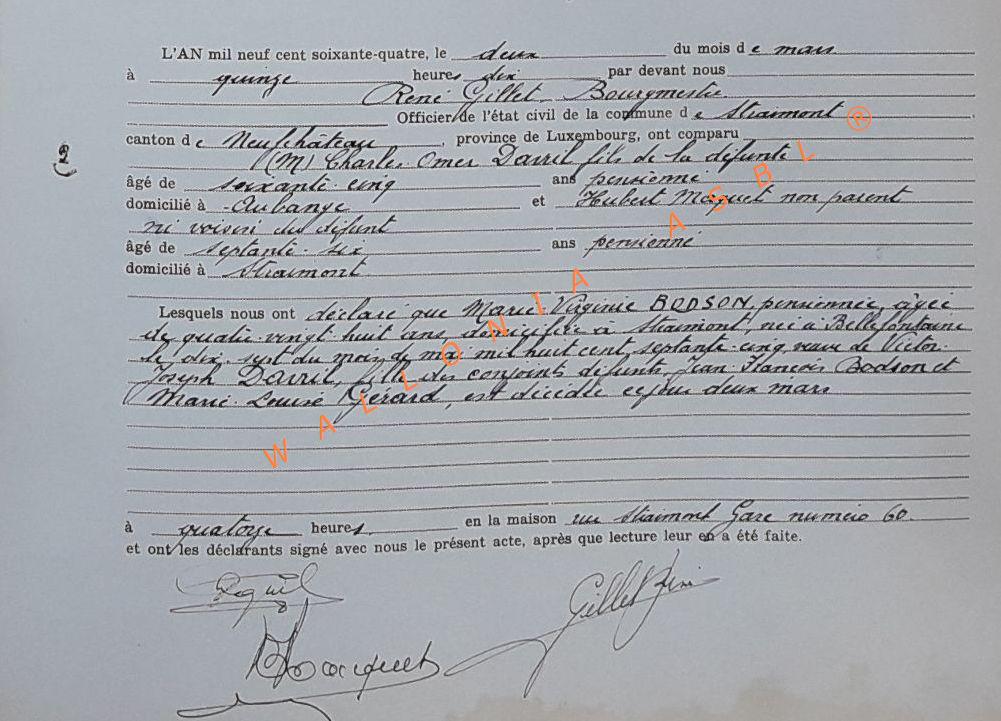 L'AN mil neuf cent soixante-quatre, le deux du mois de mars
à quinze heures dix par devant nous
René Gillet Bourgmestre
Officier de l'état civil de la commune de Straimont
canton de Neufchâteau, province de Luxembourg, ont comparu
2
(M) Charles Omer Davril fils de la défunte
âgé de soixante cinq ans pensionné
domicilié à Aubange et Hubert Maquet non parent
ni voisin du défunt
âgé de septante-six ans pensionné
domicilié à Straimont
Lesquels nous ont déclaré que Marie Virginie BODSON, pensionnée, âgée
de quatre vingt huit ans, domiciliée à Straimont, née à Bellefontaine
le dix sept du mois de mai mil huit cent septante cinq veuve de Victor
Joseph Davril, fille des conjoints défunts, Jean François Bodson et
Marie-Louise Gerard, est décédée ce jour deux mars
à quatorze heures en la maison rue Straimont Gare numéro 60
et ont les déclarants signé avec nous le présent acte, après que lecture leur en a été faite.
Gillet René
WALLONIA ASBL ®